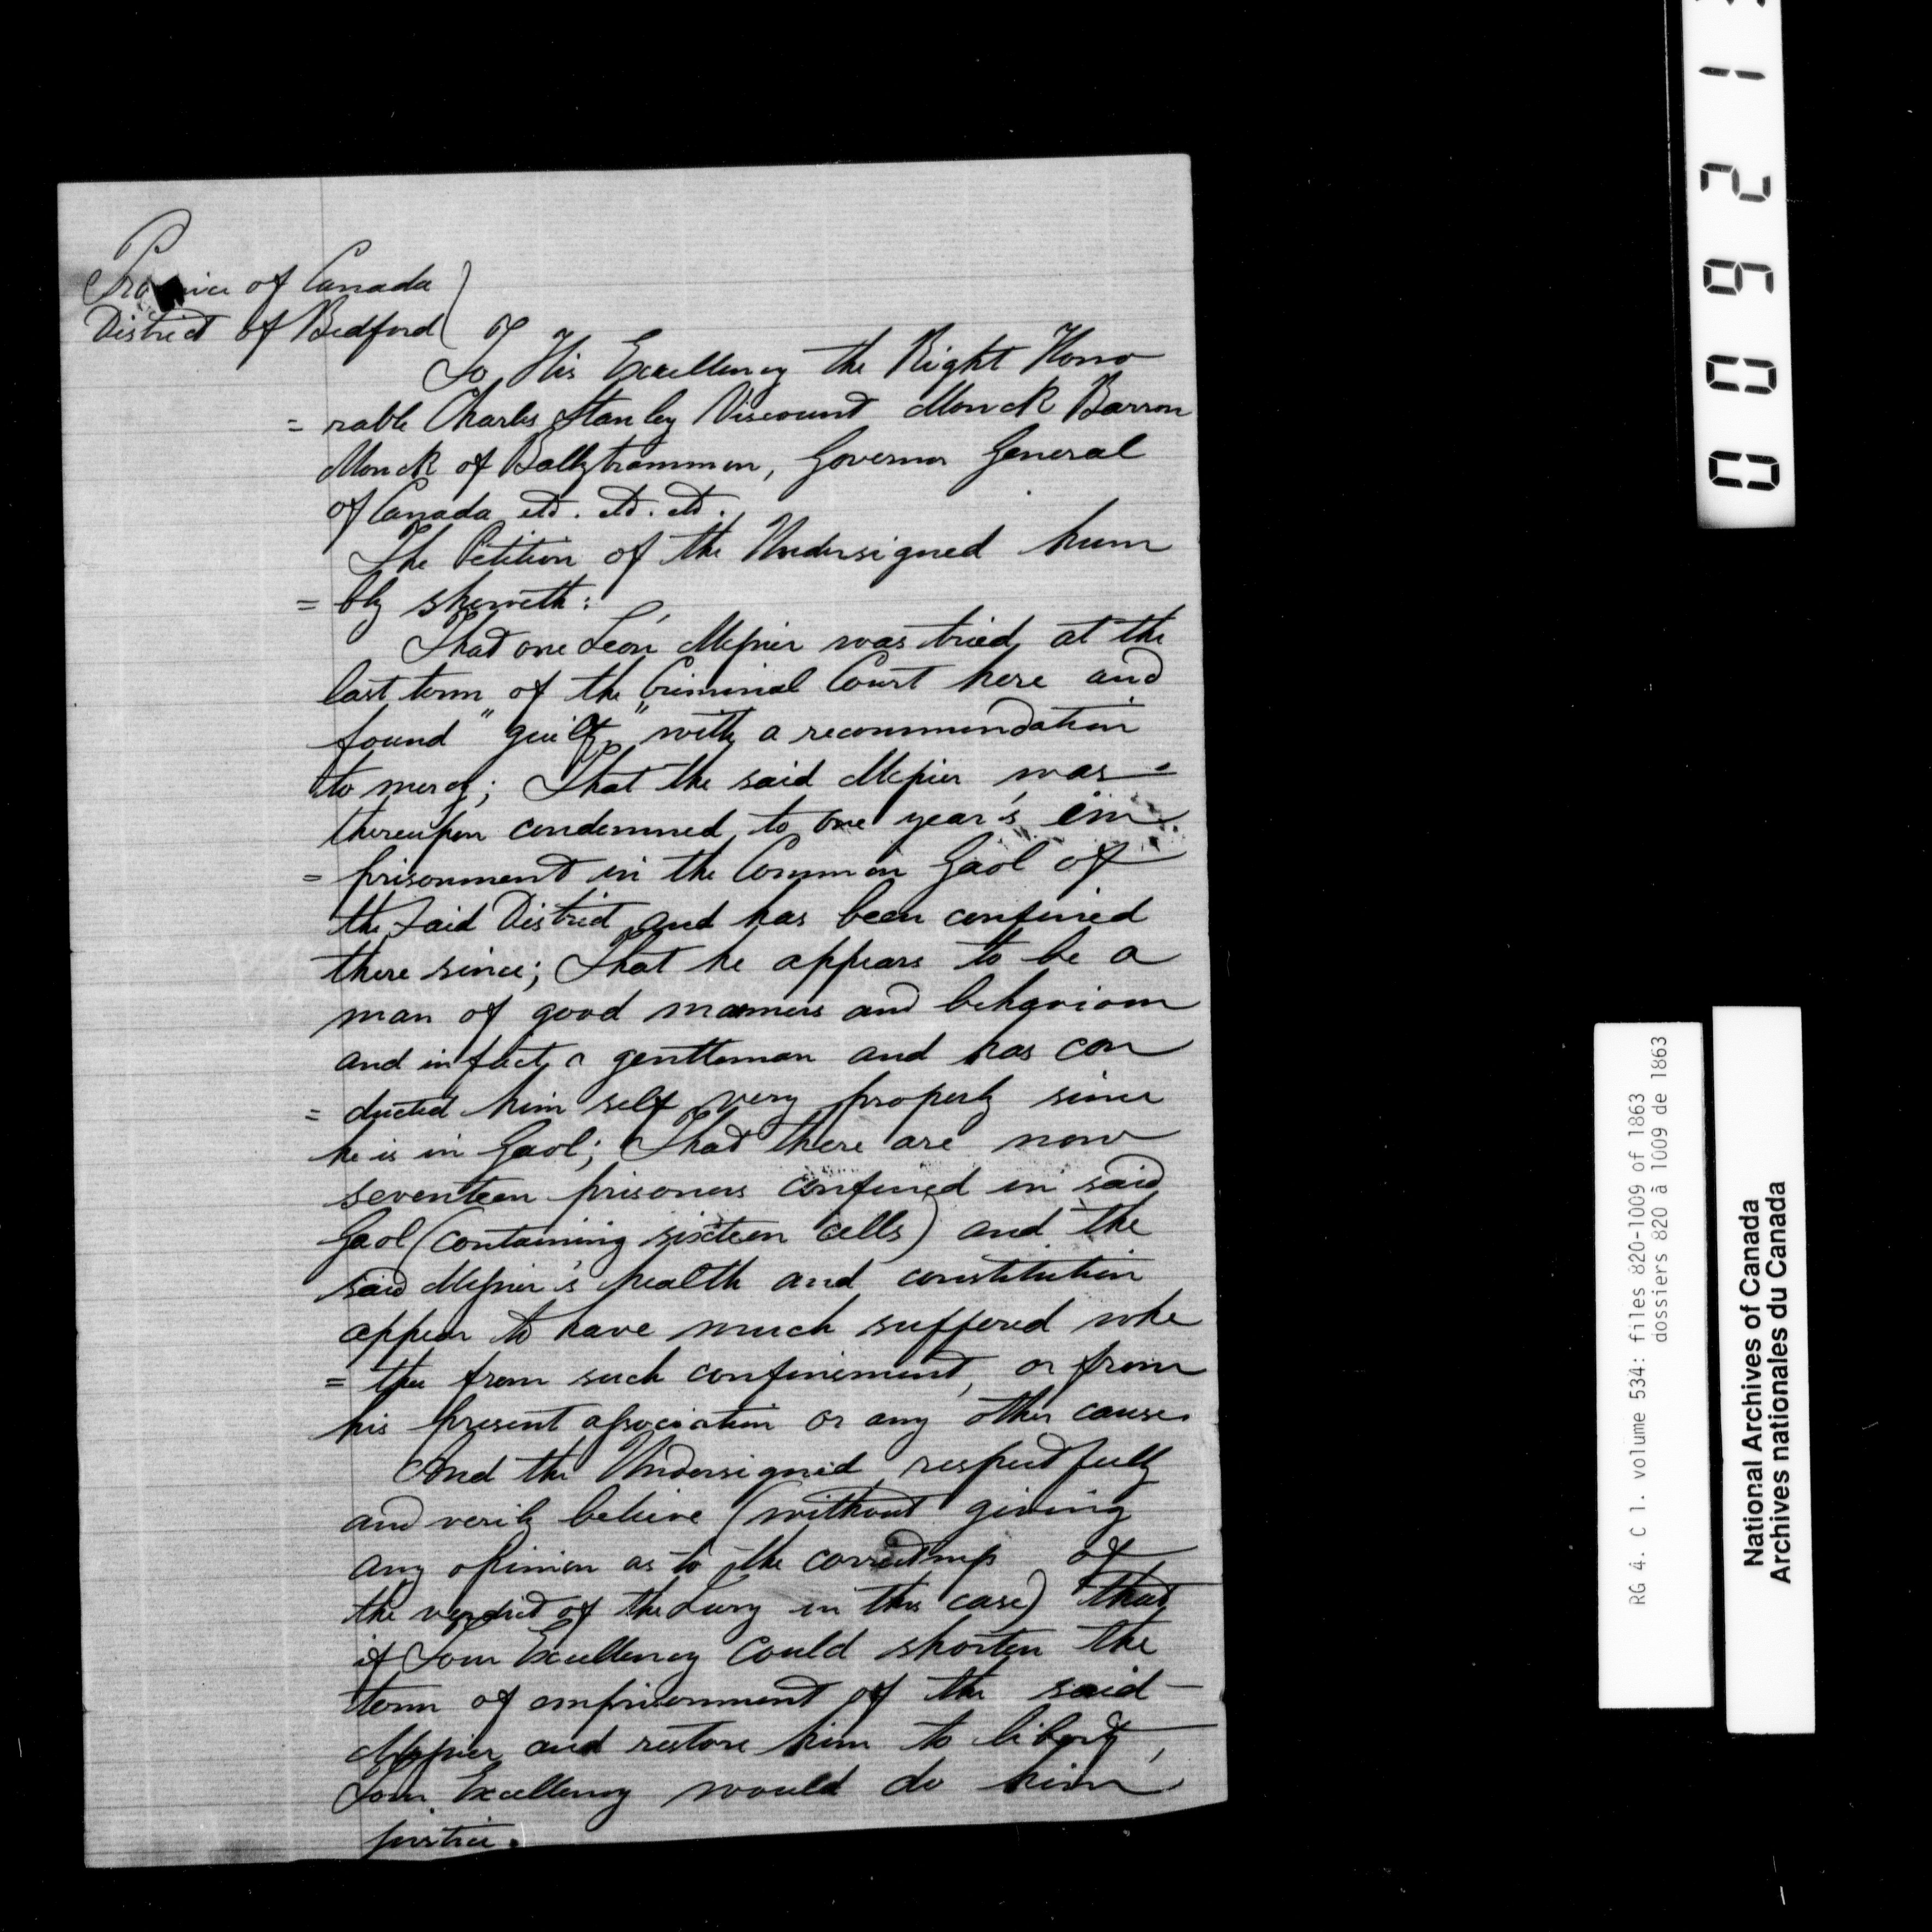 Province of Canada
District of Bedford
To His Excellency the Right Hono
= rable Charles Stanley Viscount Monck Barron
Monck of Ballytrammon, Governor General
of Canada etc. etc. etc.
The Petition of the Undersigned hum
= bly sheweth:
That one Léon Messier was tried at the
last term of the Criminal Court here and
found "guilty" with a recommendation
to mercy; That the said Messier was
thereupon condemned to one year's im
= prisonment in the Common Gaol of
the said District and has been confined
there since; That he appears to be a
man of good manners and behaviour
and in fact a gentleman and has con
= ducted him self very properly since
he is in Gaol; That there are now
seventeen prisoners confined in said
Gaol (containing sixteen cells) and the
said Messier's health and constitution
appear to have much suffered whe
= ther from such confinement, or from
his present association or any other cause.
And the Undersigned respectfully
and verily believe (without giving
any opinion as to the correctness of
the verdict of the Jury in this case) that
if Your Excellency could shorten the
term of imprisonment of the said
Messier and restore him to liberty,
Your Excellency would do him
justice.
009213
RG 4. C 1. volume 534: files 820-1009 of 1863
dossiers 820 à 1009 de 1863
National Archives of Canada
Archives nationales du Canada